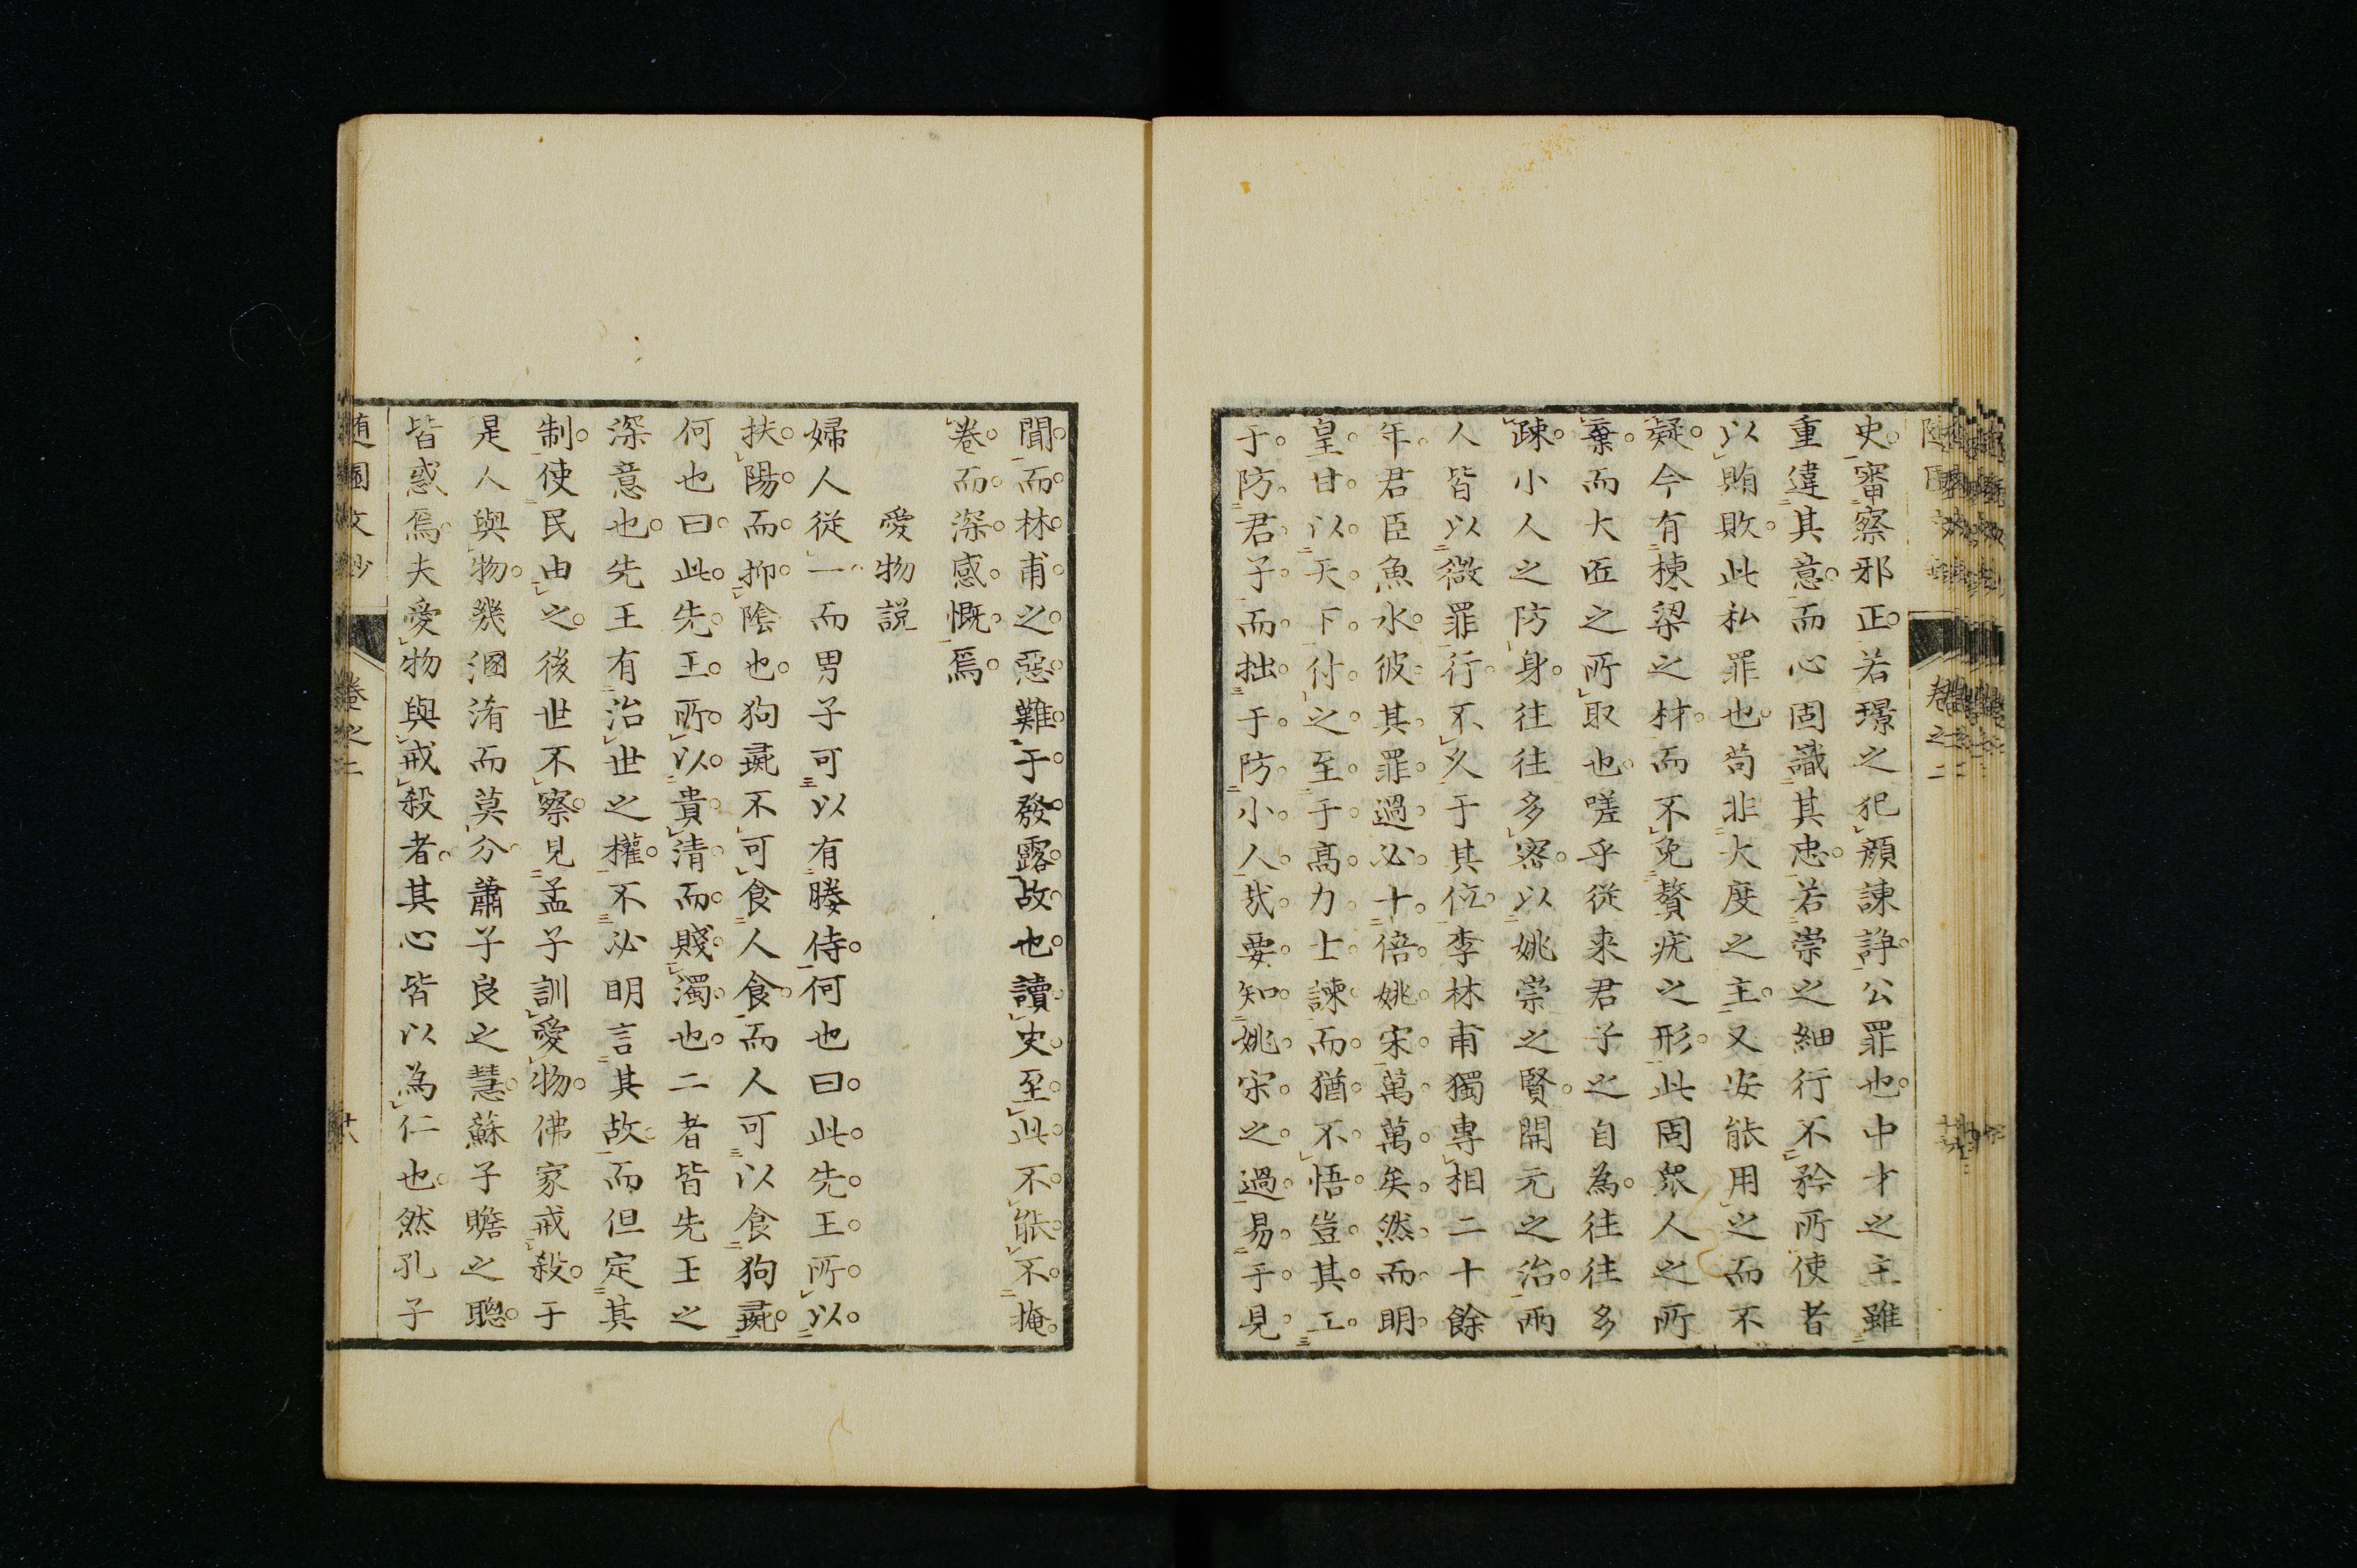 史審察邪正若璟之犯顔諫諍公罪也中才之主雖
重違其意而心固識其忠若崇之細行不矜所使者
以賄敗此私罪也苟非大度之主又安能用之而不
疑今有棟梁之材而不免贅疣之形此固衆人之所
棄而大匠之所取也嗟乎從来君子之自為往往多
疎小人之防身往往多密以姚崇之賢開元之治兩
人皆以微罪行不久于其位李林甫獨專相二十餘
年君臣魚水彼其罪過必十倍姚宋萬萬矣然而明
皇甘以天下付之至于高力士諫而猶不悟豈其工
于防君子而拙于防小人哉要知姚宋之過易于見
聞而林甫之惡難于發露故也讀史至此不能不掩
卷而深感慨焉
愛物説
婦人從一而男子可以有媵侍何也曰此先王所以
扶陽而抑陰也狗彘不可食人食而人可以食狗彘
何也曰此先王所以貴清而賤濁也二者皆先王之
深意也先王有治世之權不必明言其故而但定其
制使民由之後世不察見孟子訓愛物佛家戒殺于
是人與物幾溷淆而莫分蕭子良之慧蘇子瞻之聰
皆惑焉夫愛物與戒殺者其心皆以為仁也然孔子
随園文鈔
卷之二